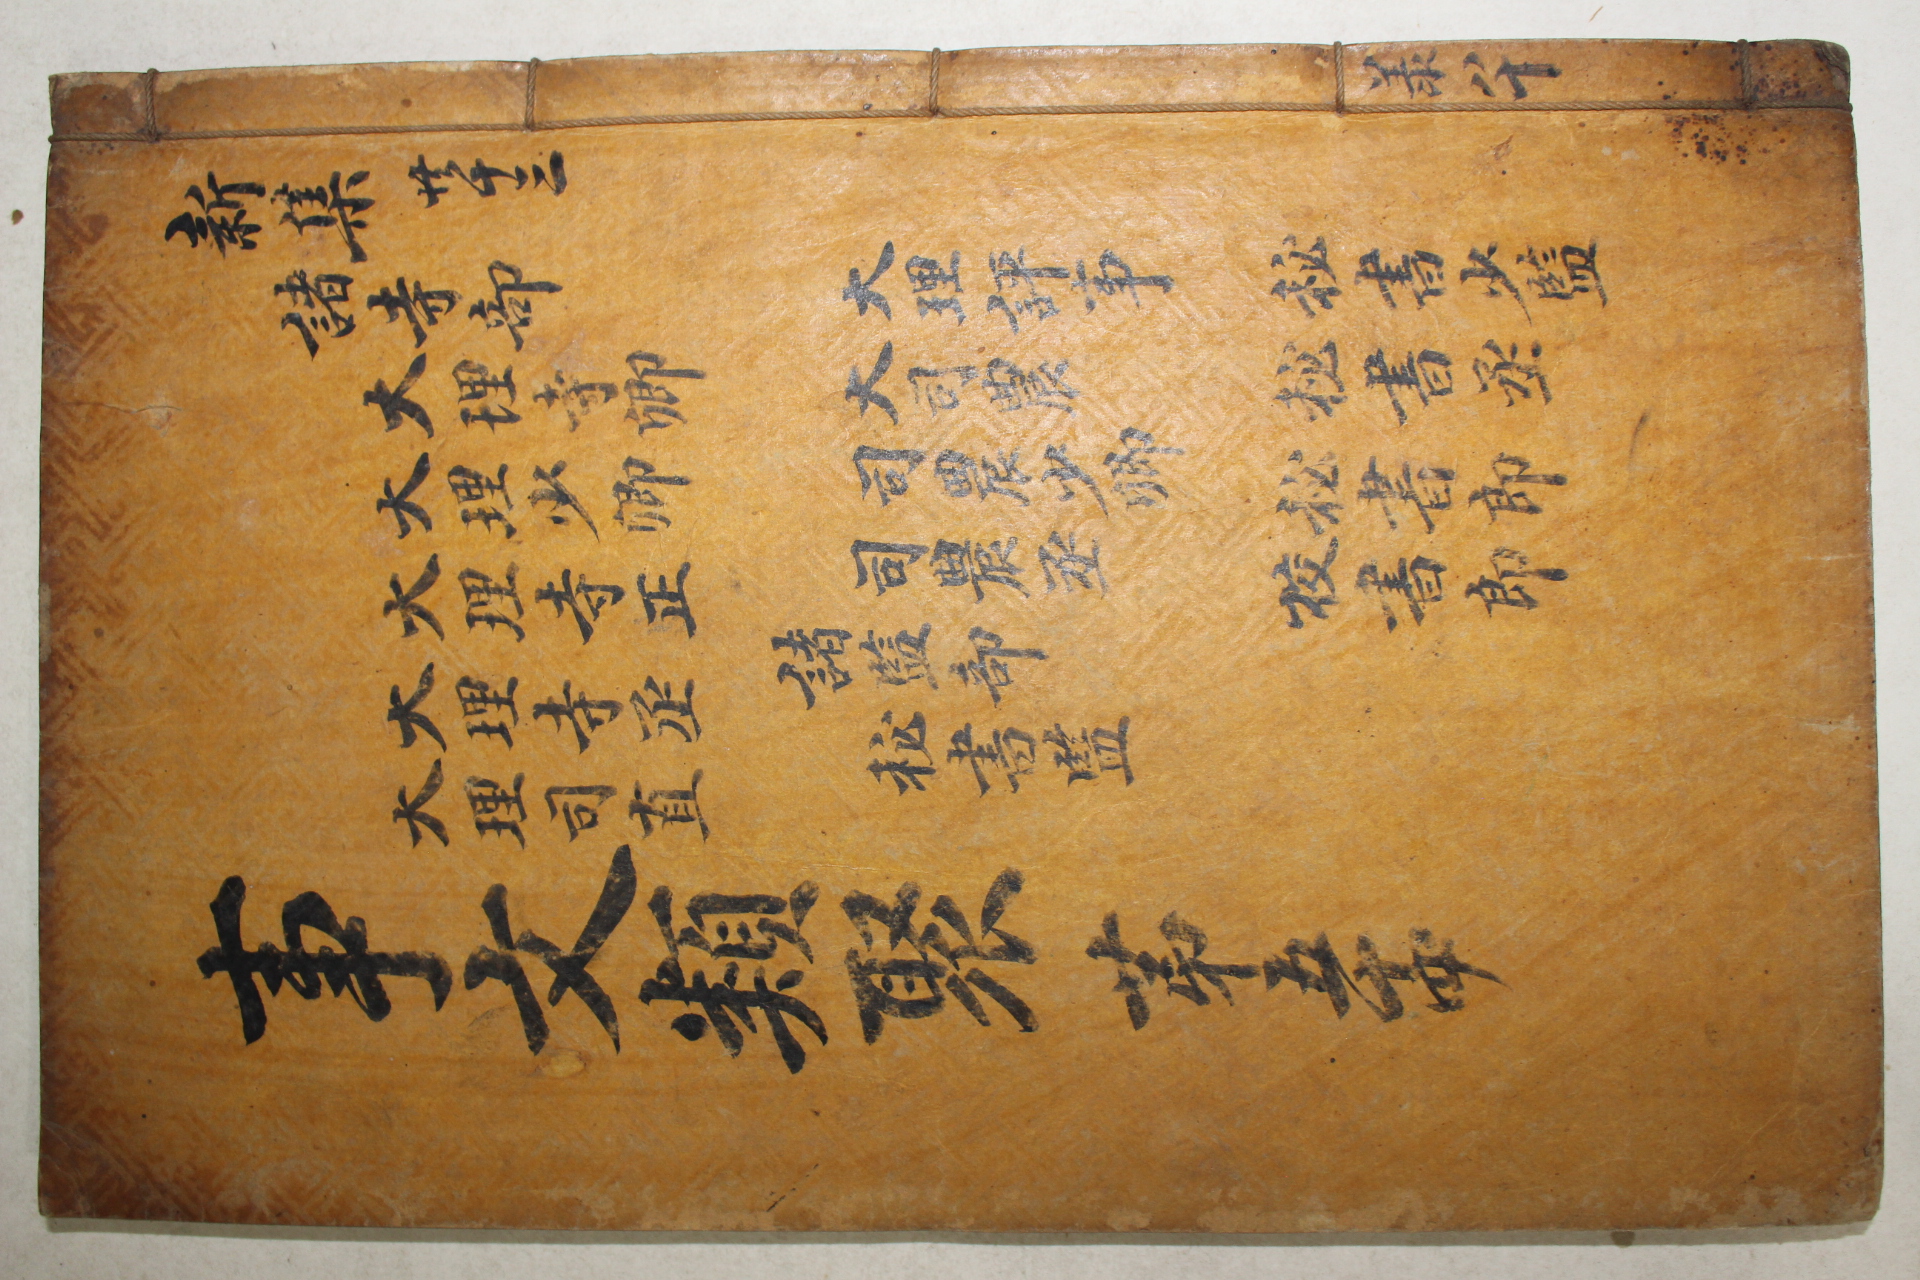 新集
諸寺部
大理寺卿
大理少卿
大理寺正
大理寺丞
大理司直
大理評事
大司農
司農少卿
司農丞
諸監部
秘書監
秘書少監
秘書丞
秘書郎
校書郎
事文類聚 第五十